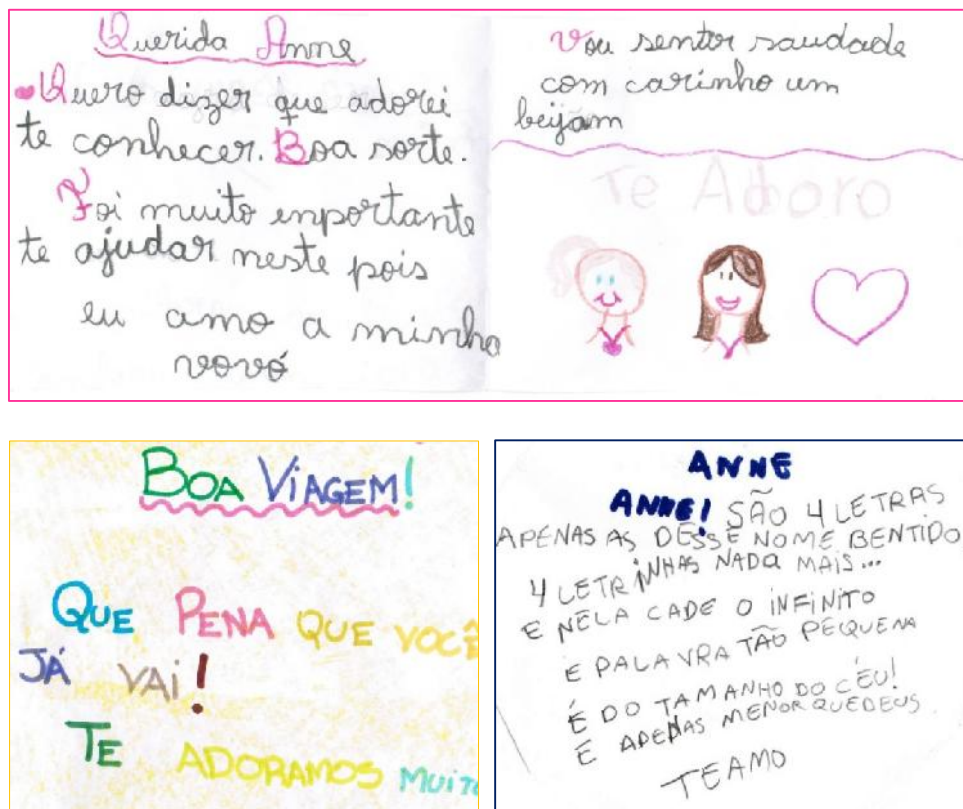 Querida Anne
Quero dizer que adorei
te conhecer. Boa sorte.
Foi muito enportante
te ajudar neste pois
eu amo a minha
vovó
Vou sentir saudade
com carinho um
beijam
Te Adoro
BOA ViAGEM!
QUE PENA QUE VOCÊ
JÁ VAi!
TE ADORAMOS MUiTO
ANNE
ANNE! SÃO 4 LETRAS
APENAS AS DESSE NOME BENTIDO
4 LETRiNHAS NADA MAIS...
E NELA CADE O iNFiNiTO
E PALAVRA TÃO PEQUENA
É DO TAMANHO DO CÉU!
E APENAS MENOR QUE DEUS
TE AMO